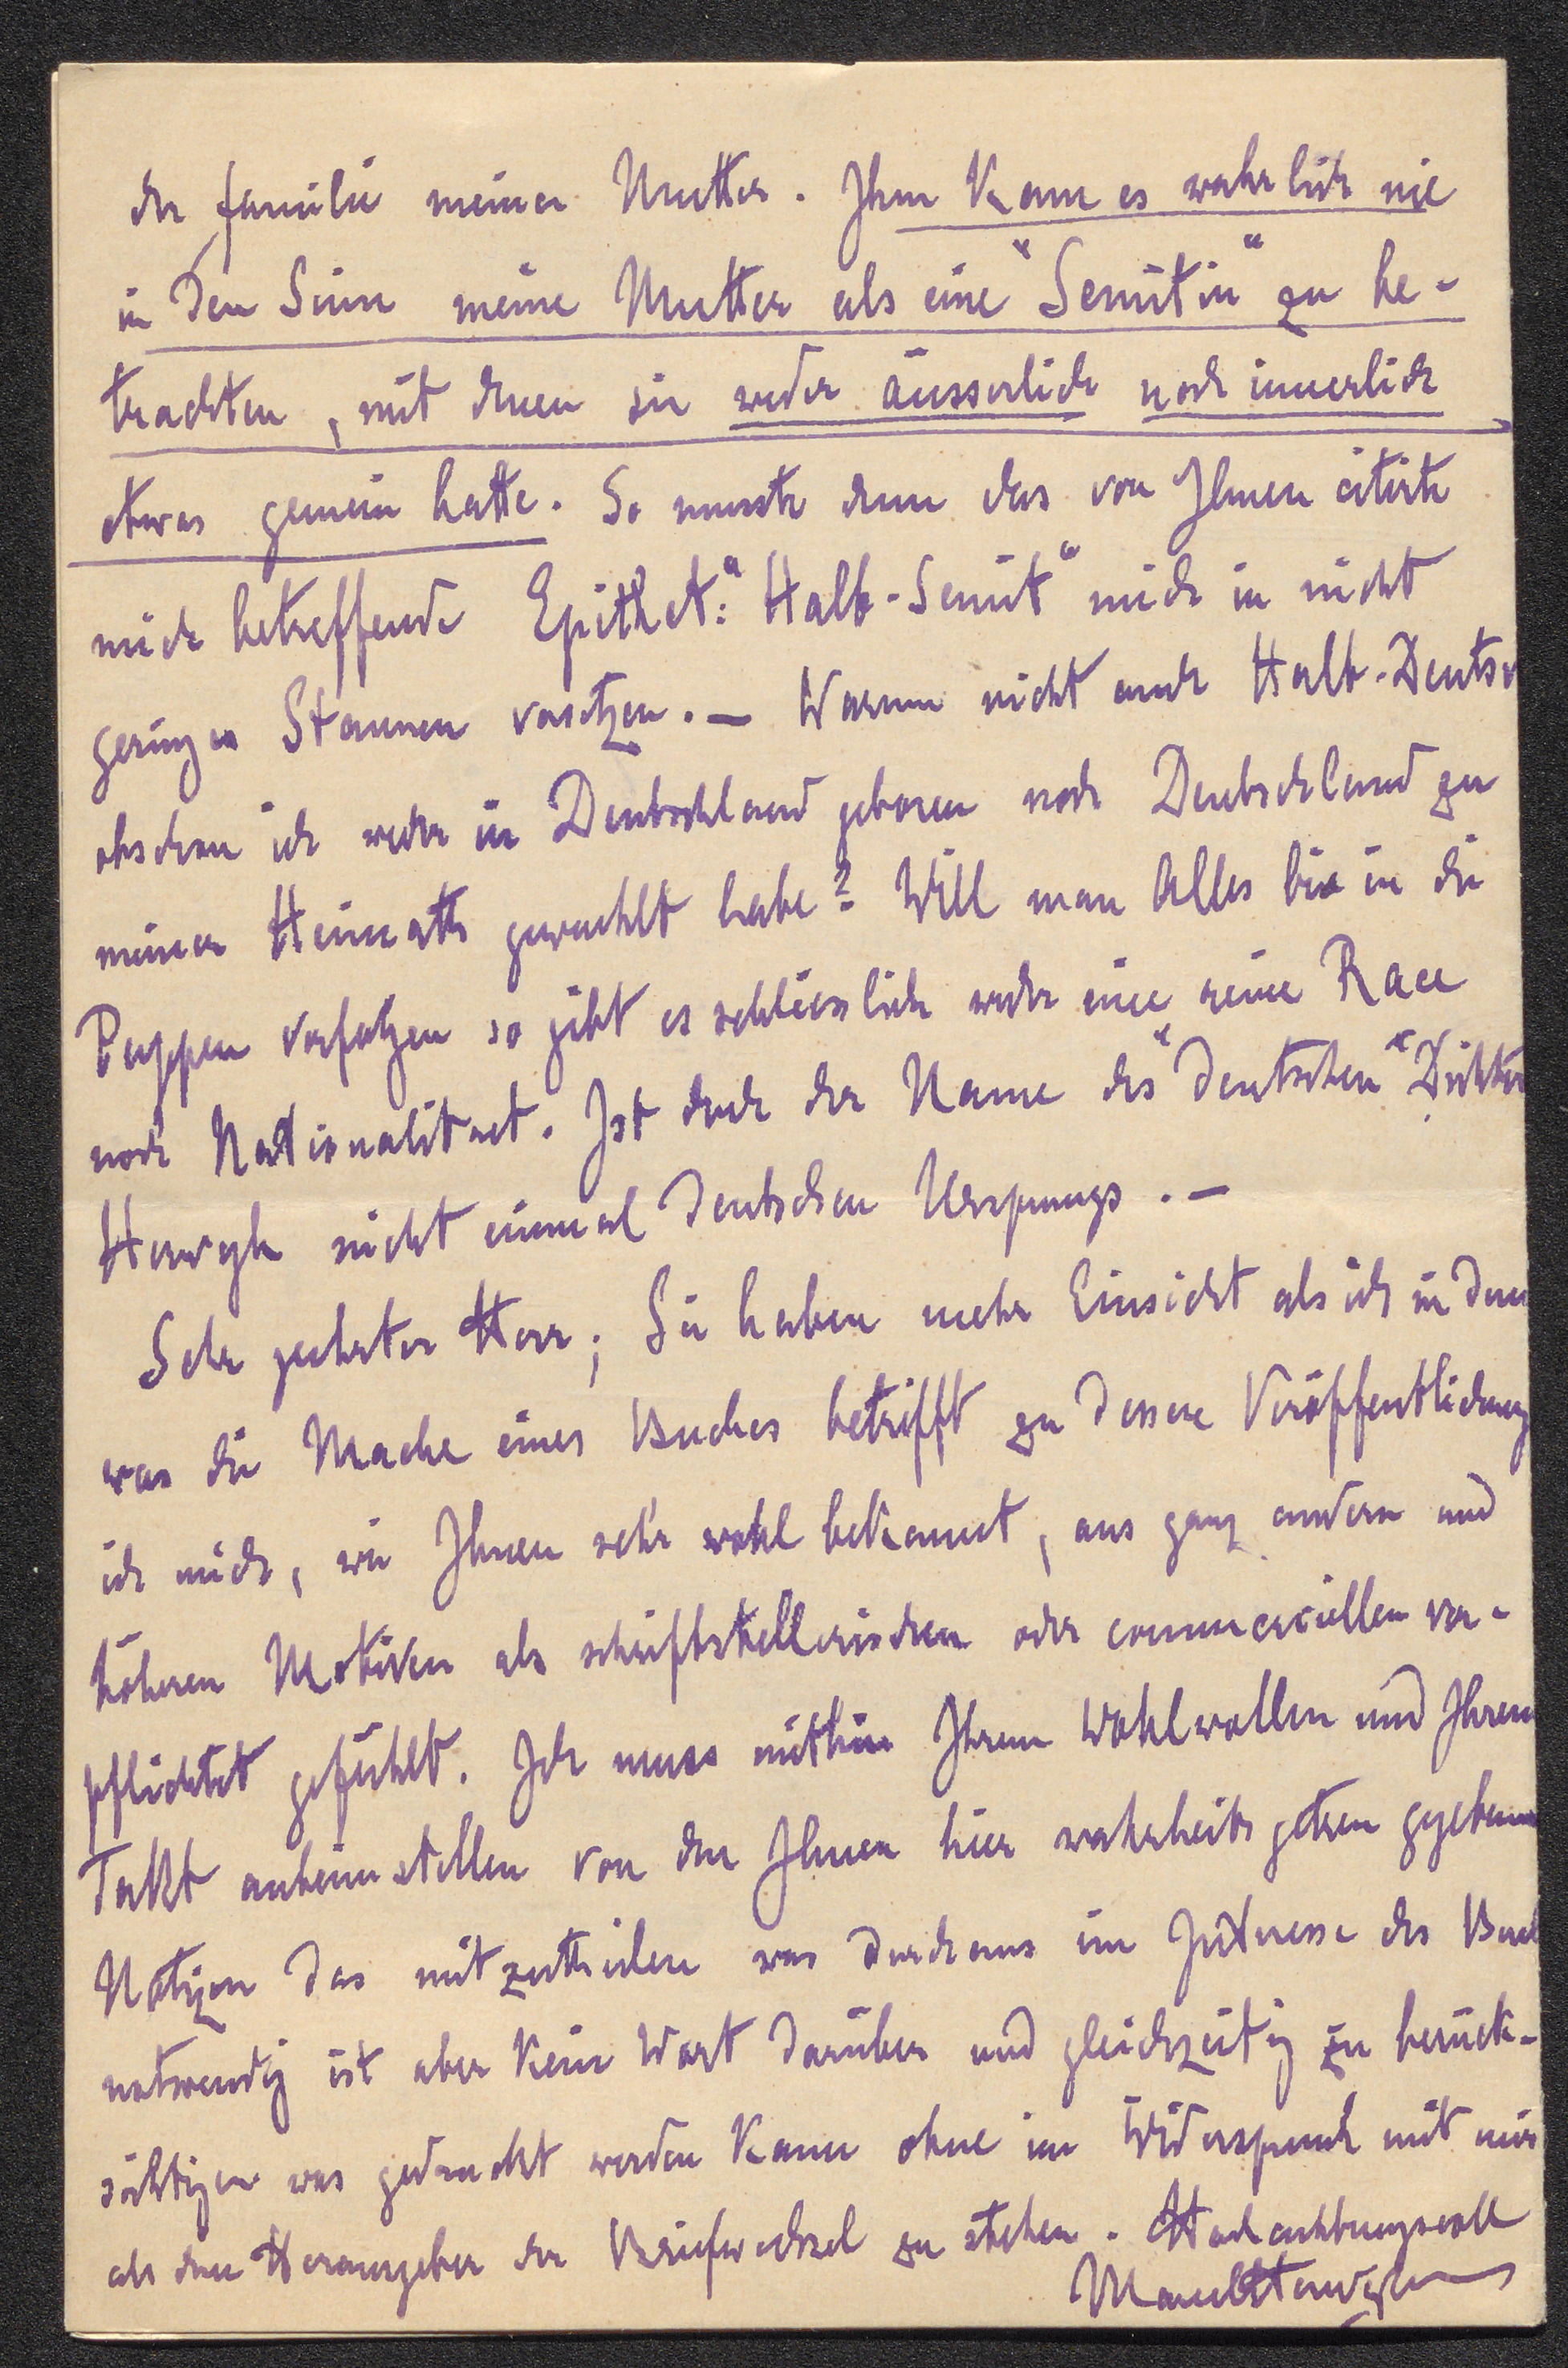 der Familie meiner Mutter. Ihm kam es wahrlich nie
in den Sinn meine Mutter als eine "Semitin" zu be-
trachten, mit denen sie weder äusserlich noch innerlich
etwas gemein hatte. So musste denn das von Ihnen citirte
mich betreffende Epithet: "Halb-Semit" mich in nicht
geringes Staunen versetzen. — Warum nicht auch Halb-Deutsch
obschon ich weder in Deutschland geboren noch Deutschland zu
meiner Heimath gewaehlt habe? Will man Alles bis in die
Puppen verfolgen so gibt es schliesslich weder eine reine Race
noch Nationalitaet. Ist doch der Name des "deutschen" Dichters
Herwegh nicht einmal deutschen Ursprungs. —
Sehr geehrter Herr; Sie haben mehr Einsicht als ich in dem
was die Mache eines Buches betrifft zu dessen Veröffentlichung
ich mich, wie Ihnen sehr wohl bekannt, aus ganz andern und
höheren Motiven als schriftstellerischen oder commerciellen ver-
pflichtet gefühlt. Ich muss mithin Ihrem Wohlwollen und Ihrem
Takt anheimstellen von den Ihnen hier wahrheitsgetreu gegebenen
Notizen das mitzutheilen was durchaus im Interesse des Buch
notwendig ist aber kein Wort darüber und gleichzeitig zu berück-
sichtigen was gedruckt werden kann ohne im Widerspruch mit mir
als dem Herausgeber der Briefwechsel zu stehen. Hochachtungsvoll
Marcel Herwegh